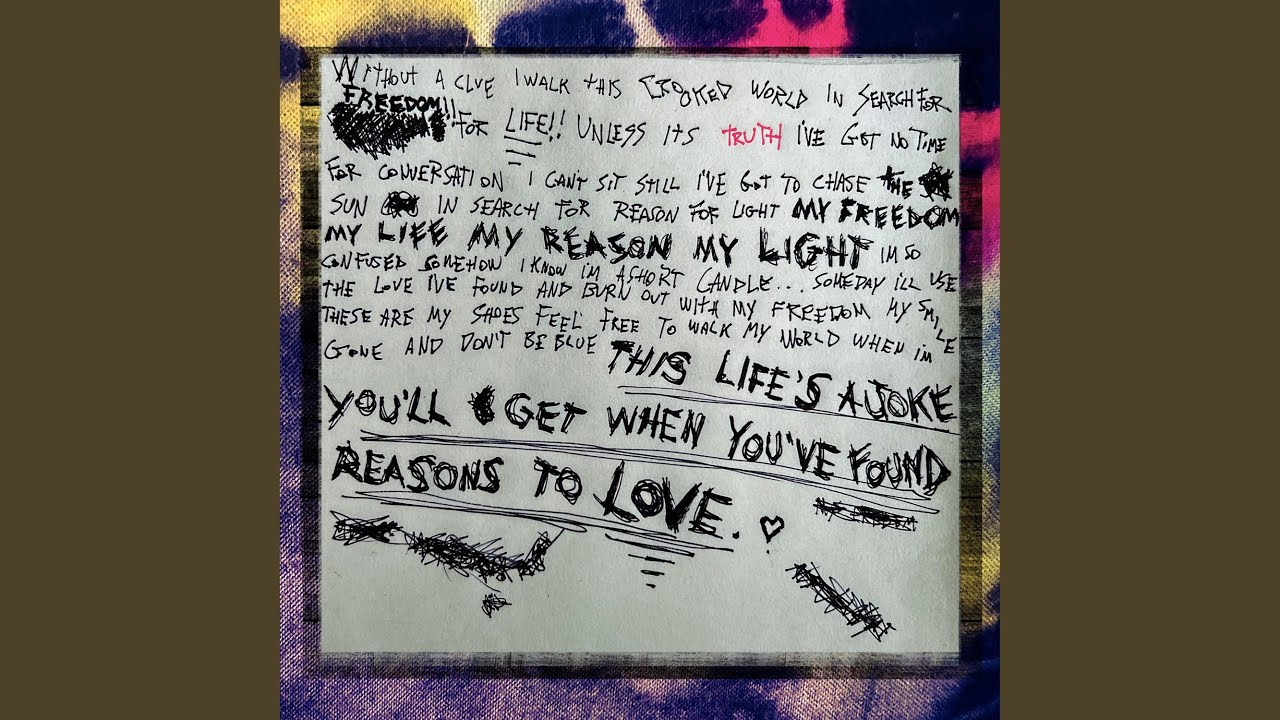 WITHOUT A CLUE I WALK THIS CROOKED WORLD IN SEARCH FOR
FREEDOM!! FOR LIFE!! UNLESS ITS TRUTH I'VE GOT NO TIME
FOR CONVERSATION I CANT SIT STILL I'VE GOT TO CHASE THE
SUN IN SEARCH FOR REASON FOR LIGHT MY FREEDOM
MY LIFE MY REASON MY LIGHT IM SO
CONFUSED SOMEHOW I KNOW IM A SHORT CANDLE... SOMEDAY I'LL USE
THE LOVE I'VE FOUND AND BURN OUT WITH MY FREEDOM MY SMILE
THESE ARE MY SHOES FEEL FREE TO WALK MY WORLD WHEN IM
GONE AND DON'T BE BLUE THIS LIFE'S A JOKE
YOU'LL GET WHEN YOU'VE FOUND
REASONS TO LOVE.